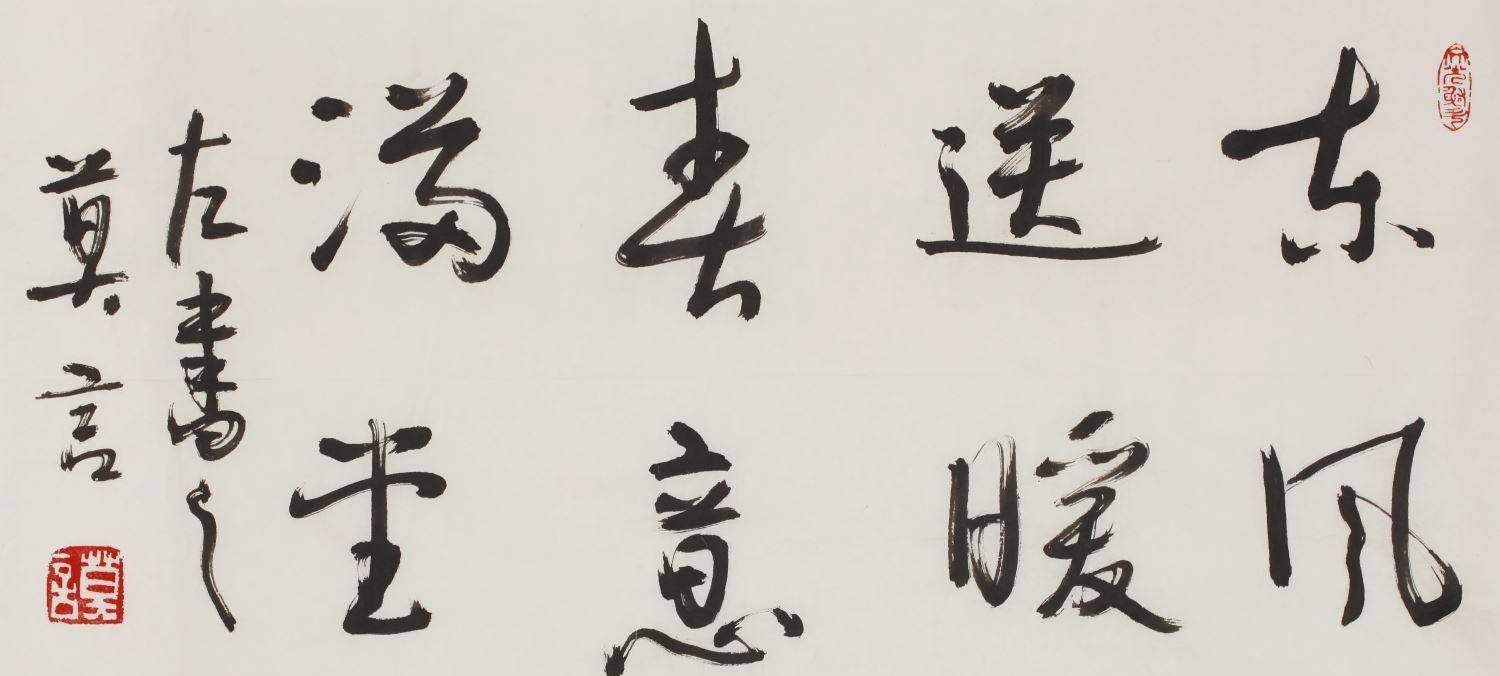 东风
送暖
春意
满堂
左書之
莫言
莫言